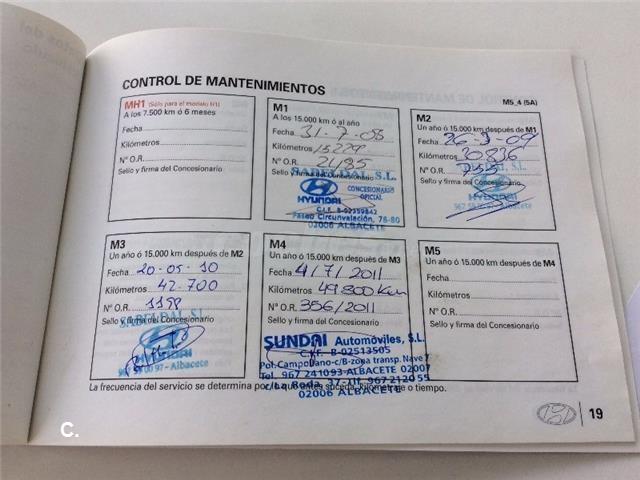 CONTROL DE MANTENIMIENTOS
M5_4 (5A)
MH1 (Sólo para el modelo H1)
A los 7.500 km ó 6 meses
Fecha
Kilómetros
Nº O.R.
Sello y firma del Concesionario
M1
A los 15.000 km ó al año
Fecha 31-7-08
Kilómetros 15229
Nº O.R. 2485
Sello y firma del Concesionario
SABELDAL S.L.
CONCESIONARIO
OFICIAL
HYUNDAI
C.I.F. B-02359842
Paseo Circunvalación, 78-80
02006 ALBACETE
M2
Un año ó 15.000 km después de M1
Fecha 26-3-09
Kilómetros 30836
Nº O.R.
Sello y firma del Concesionario
HYUNDAI
M3
Un año ó 15.000 km después de M2
Fecha 20-05-10
Kilómetros 42-700
Nº O.R. 1158
Sello y firma del Concesionario
SABELDAL S.L.
00 97 - Albacete
M4
Un año ó 15.000 km después de M3
Fecha 4/7/2011
Kilómetros 49800 Km
Nº O.R. 356/2011
Sello y firma del Concesionario
SUNDAI Automóviles, S.L.
C.I.F. B-02513505
Pol. Campollano-c/B-zona transp. Nave 7
Tel. 967 241093-ALBACETE 02007
c/La Roda, 37-Tlf. 967 212055
02006 ALBACETE
M5
Un año ó 15.000 km después de M4
Fecha
Kilómetros
Nº O.R.
Sello y firma del Concesionario
La frecuencia del servicio se determina por lo que antes suceda, kilometraje o tiempo.
19
C.